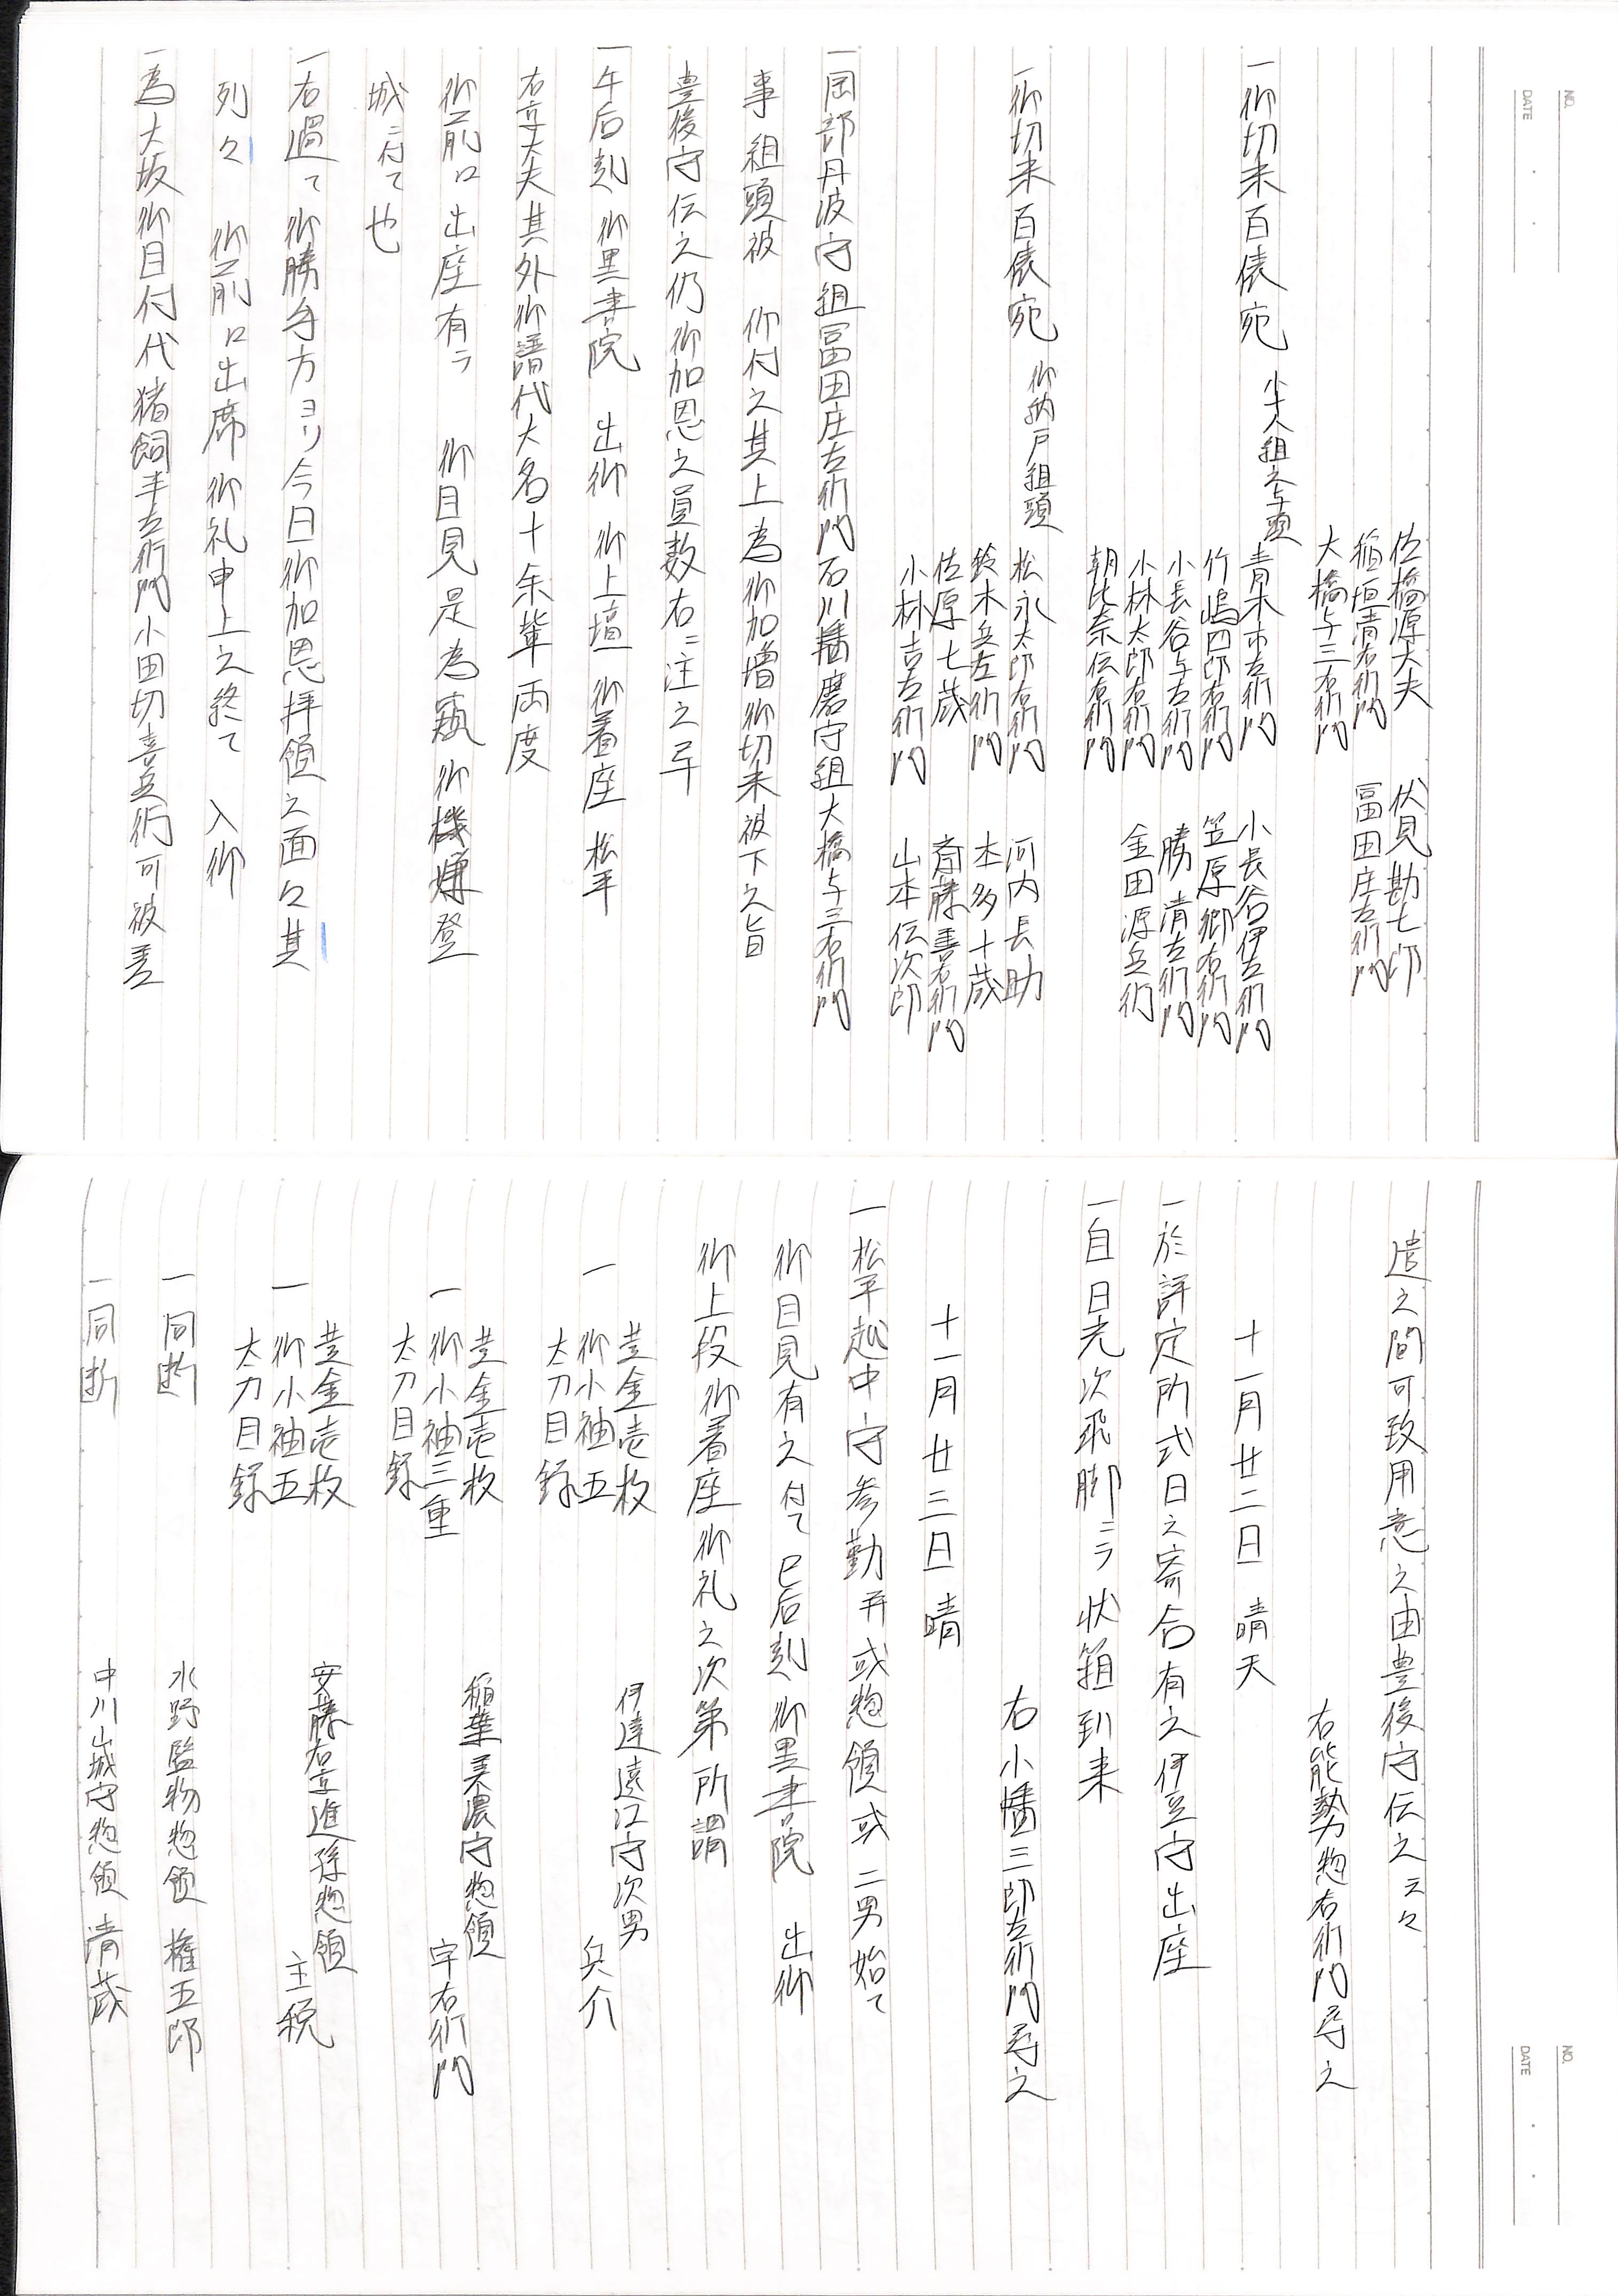 佐橋源大夫　伏見勘七郎
稲垣清右衛門　冨田庄左衛門
大橋与三右衛門
一御切米百俵宛　小十人組之与頭　青木市左衛門　小長谷伊左衛門
竹嶋四郎右衛門　笠原郷右衛門
小長谷与左衛門　勝清左衛門
小林太郎右衛門　金田源兵衛
朝比奈伝右衛門
一御切米百俵宛　御納戸組頭　松永太郎右衛門　河内長助
鈴木兵左衛門　本多十蔵
佐原七蔵　斎藤善右衛門
小林吉右衛門　山本伝次郎
一岡部丹波守組冨田庄左衛門石川播磨守組大橋与三右衛門
事組頭被　仰付之其上為御加増御切米被下之旨
豊後守伝之仍御加恩之員数右ニ注之早
一午后刻　御黒書院　出御　御上壇　御着座　松平
右京大夫其外御譜代大名十余輩両度
御前口出座有テ　御目見是為窺御機嫌登
城ニ付て也
一右過て御勝手方ヨリ今日御加恩拝領之面々其
列々　御前口出席御礼申上之終て　入御
一為大坂御目付代猪飼半左衛門小田切喜兵衛可被差
遣之間可致用意之由豊後守伝之云々
右能勢惣右衛門尋之
十一月廿二日　晴天
一於評定所式日之寄合有之伊豆守出座
一自日光次飛脚ニテ状箱到来
右小幡三郎左衛門尋之
十一月廿三日　晴
一松平越中守参勤并或惣領或二男始て
御目見有之付て巳后刻御黒書院　出御
御上段御着座御礼之次第所謂
黄金壱枚
一御小袖五
太刀目録
伊達遠江守次男
兵介
黄金壱枚
一御小袖三重
太刀目録
稲葉美濃守惣領
宇右衛門
黄金壱枚
一御小袖五
太刀目録
安藤右京進孫惣領
主税
一同断　水野監物惣領　権五郎
一同断　中川山城守惣領　清蔵
NO.
DATE
NO.
DATE